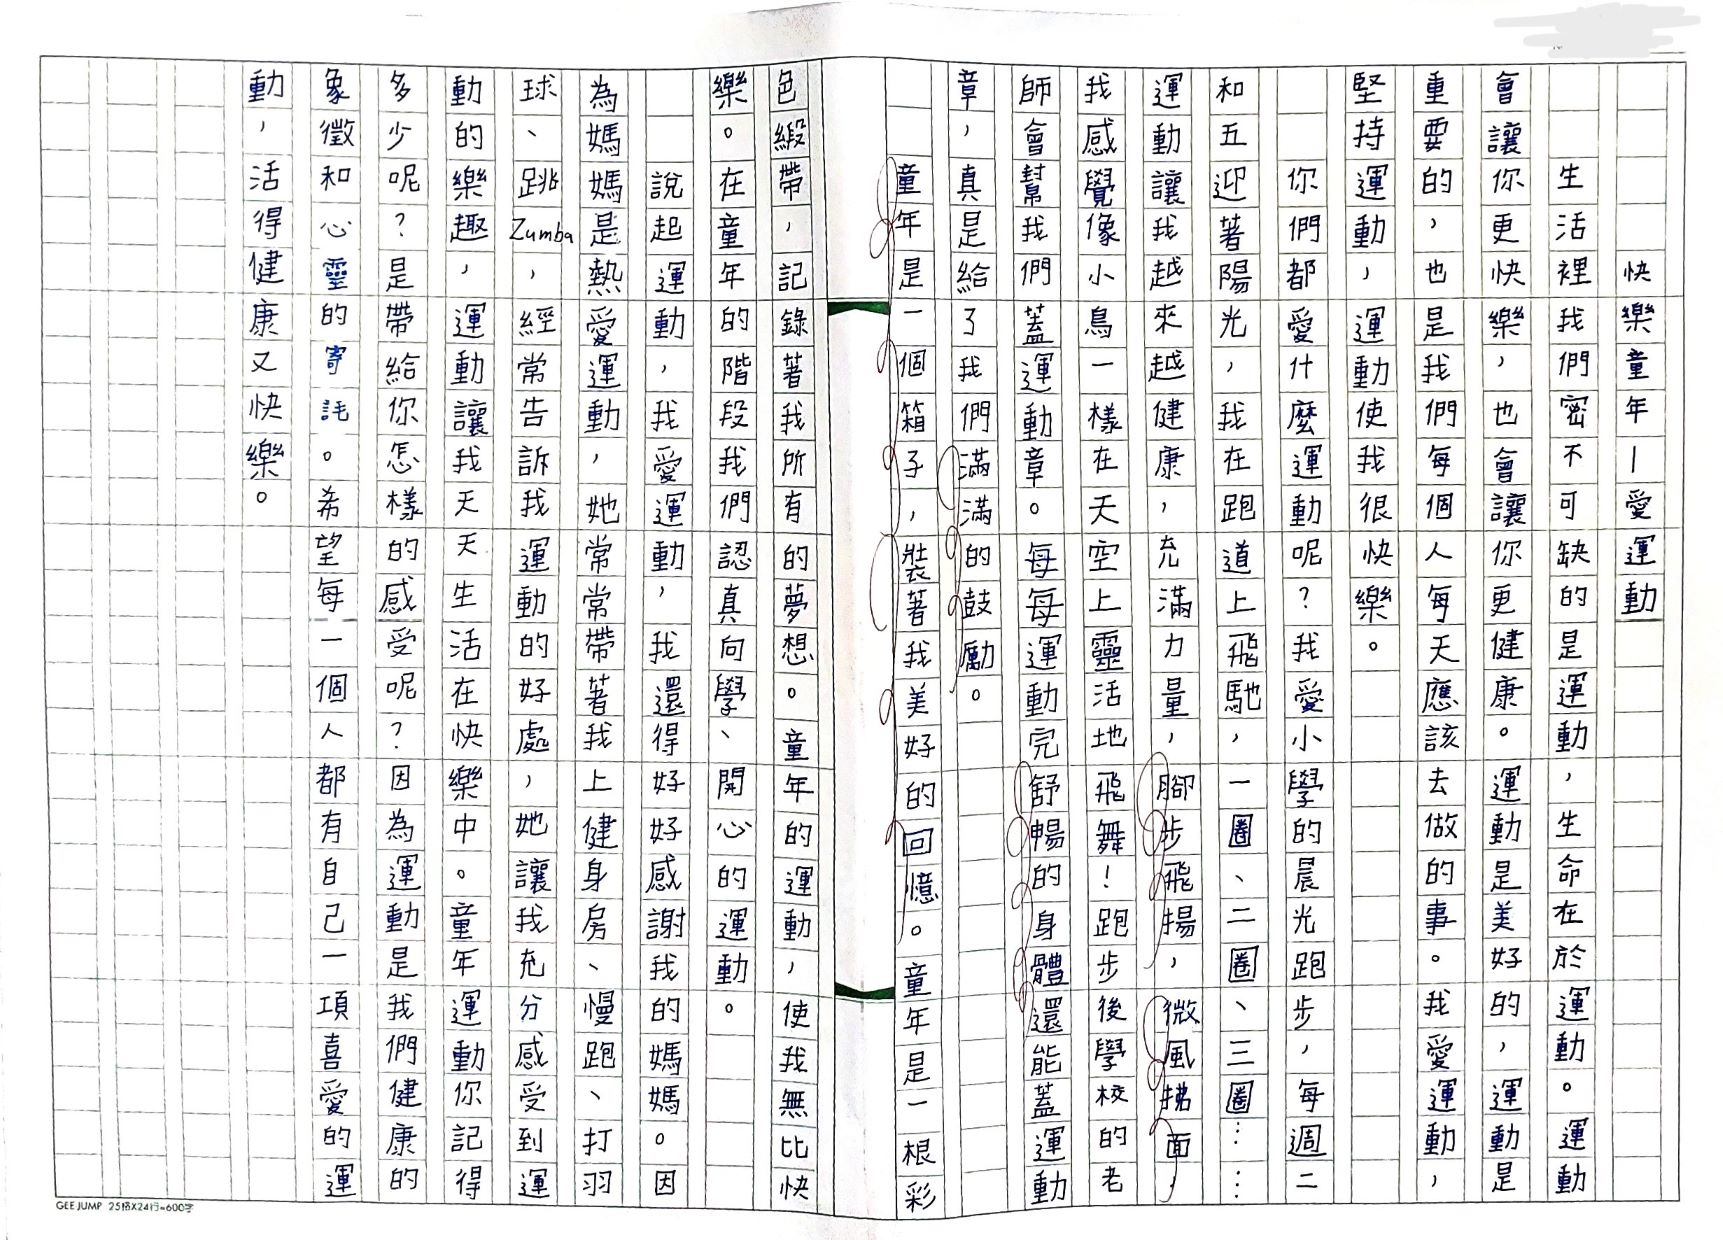 快樂童年—愛運動
生活裡我們密不可缺的是運動，生命在於運動。運動
會讓你更快樂，也會讓你更健康。運動是美好的，運動是
重要的，也是我們每個人每天應該去做的事。我愛運動，
堅持運動，運動使我很快樂。
你們都愛什麼運動呢？我愛小學的晨光跑步，每週二
和五迎著陽光，我在跑道上飛馳，一圈、二圈、三圈……
運動讓我越來越健康，充滿力量，腳步飛揚，微風拂面，
我感覺像小鳥一樣在天空上靈活地飛舞！跑步後學校的老
師會幫我們蓋運動章。每每運動完舒暢的身體還能蓋運動
章，真是給了我們滿滿的鼓勵。
童年是一個箱子，裝著我美好的回憶。童年是一根彩
色緞帶，記錄著我所有的夢想。童年的運動，使我無比快
樂。在童年的階段我們認真向學、開心的運動。
說起運動，我愛運動，我還得好好感謝我的媽媽。因
為媽媽是熱愛運動，她常常帶著我上健身房、慢跑、打羽
球、跳Zumba，經常告訴我運動的好處，她讓我充分感受到運
動的樂趣，運動讓我天天生活在快樂中。童年運動你記得
多少呢？是帶給你怎樣的感受呢？因為運動是我們健康的
象徵和心靈的寄託。希望每一個人都有自己一項喜愛的運
動，活得健康又快樂。
GEE JUMP 25格X24行=600字